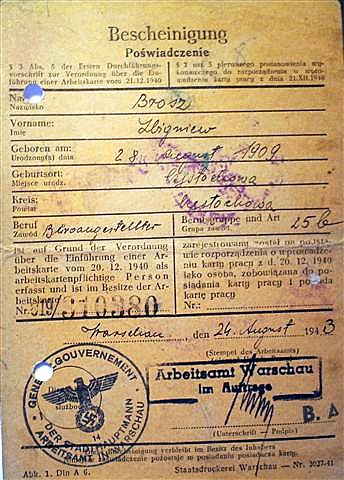 Bescheinigung
Poświadczenie
§ 3 Abs. 5 der Ersten Durchführungsvorschrift zur Verordnung über die Einführung einer Arbeitskarte vom 21.12.1940
§ 3 ust. 5 pierwszego postanowienia wykonawczego do rozporządzenia o wprowadzeniu karty pracy z dnia 21.XII.1940
Nazwisko
Brosz
Vorname:
Imię
Zbigniew
Geboren am:
Urodzony(a) dnia
28. August 1909
Geburtsort:
Miejsce urodz.
Częstochowa
Kreis:
Powiat
Częstochowa
Beruf
Zawód
Büroangestellter
Berufsgruppe und Art
Grupa zawód.
25 b
ist auf Grund der Verordnung
über die Einführung einer Ar-
beitskarte vom 20. 12. 1940 als
arbeitskartenpflichtige Person
erfasst und ist im Besitze der Ar-
beitskarte
Nr.: 319/310380
zarejestrowany został na podsta-
wie rozporządzenia o wprowadze-
niu karty pracy z d. 20. 12. 1940
jako osoba, zobowiązana do po-
siadania karty pracy i posiada
kartę pracy
Nr.:
Warschau, den 24. August 1943
(Stempel des Arbeitsamts)
GENERALGOUVERNEMENT
DER STADTHAUPTMANN
ARBEITSAMT WARSCHAU
14
Arbeitsamt Warschau
im Auftrage
B. A
(Unterschrift — Podpis)
Diese Bescheinigung verbleibt im Besitz des Inhabers
Niniejsze zaświadczenie pozostaje w posiadaniu posiadacza karty.
Abk. 1. Din A 6.
Staatsdruckerei Warschau — Nr. 3027-41